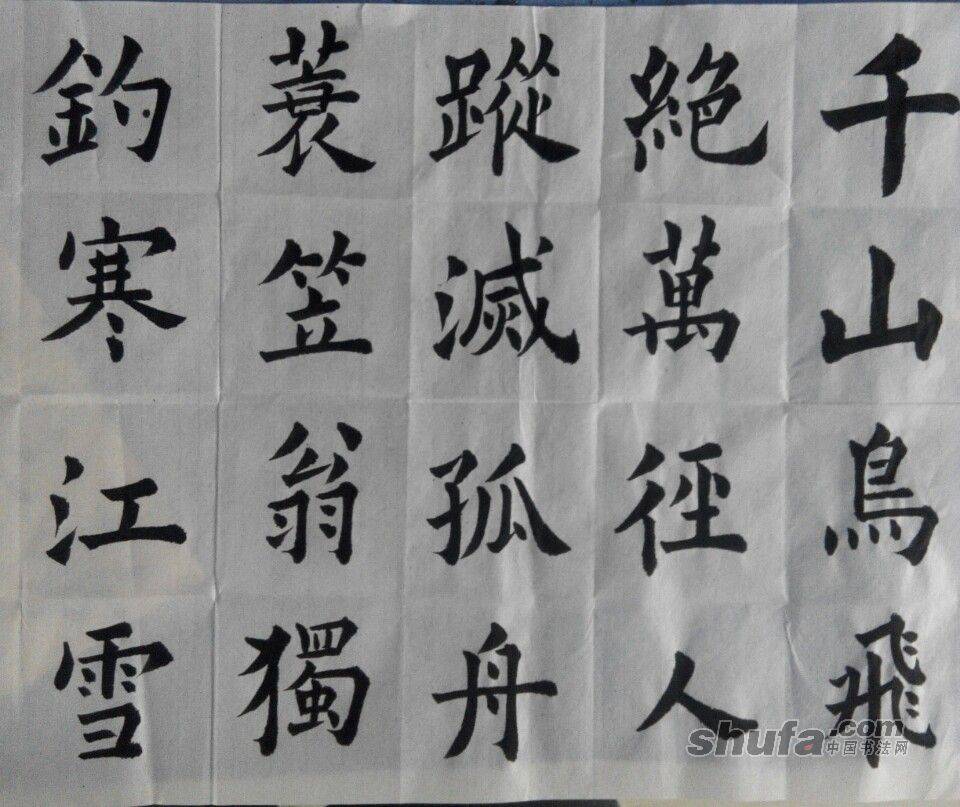 千山鳥飛
絕萬徑人
蹤滅孤舟
蓑笠翁獨
釣寒江雪
shufa.com
中国书法网